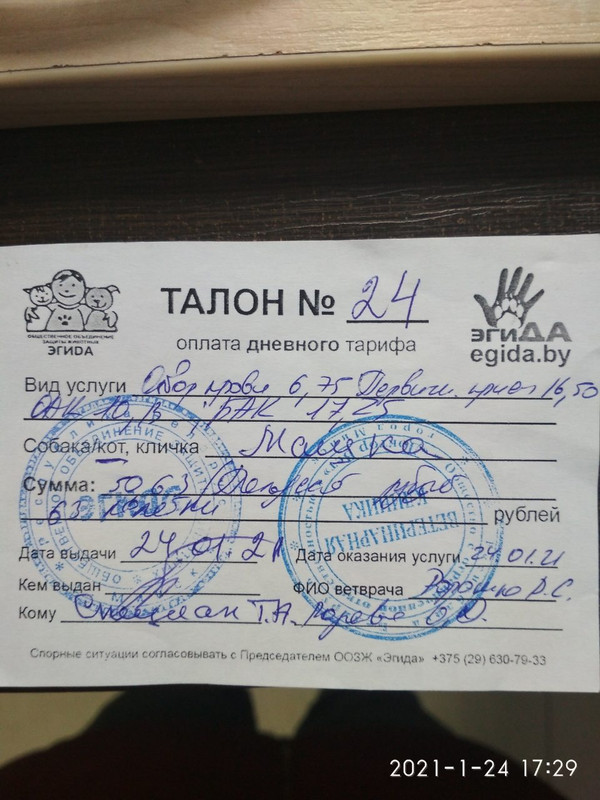 ТАЛОН № 24
оплата дневного тарифа
ОБЩЕСТВЕННОЕ ОБЪЕДИНЕНИЕ
ЗАЩИТЫ ЖИВОТНЫХ
ЭГИДА
эгиДА
egida.by
Вид услуги Сбор крови 6,75 Первич. прием 16,50
ОАК 10,13 БАК 17,25
Собака/кот, кличка
Сумма: 50,63 Пятьдесят рублей
63 копейки рублей
Дата выдачи 24.01.21 Дата оказания услуги 24.01.21
Кем выдан ФИО ветврача
Кому Т.А.
Спорные ситуации согласовывать с Председателем ООЗЖ «Эгида» +375 (29) 630-79-33
ВЕТЕРИНАРНАЯ
КЛИНИКА
2021-1-24 17:29